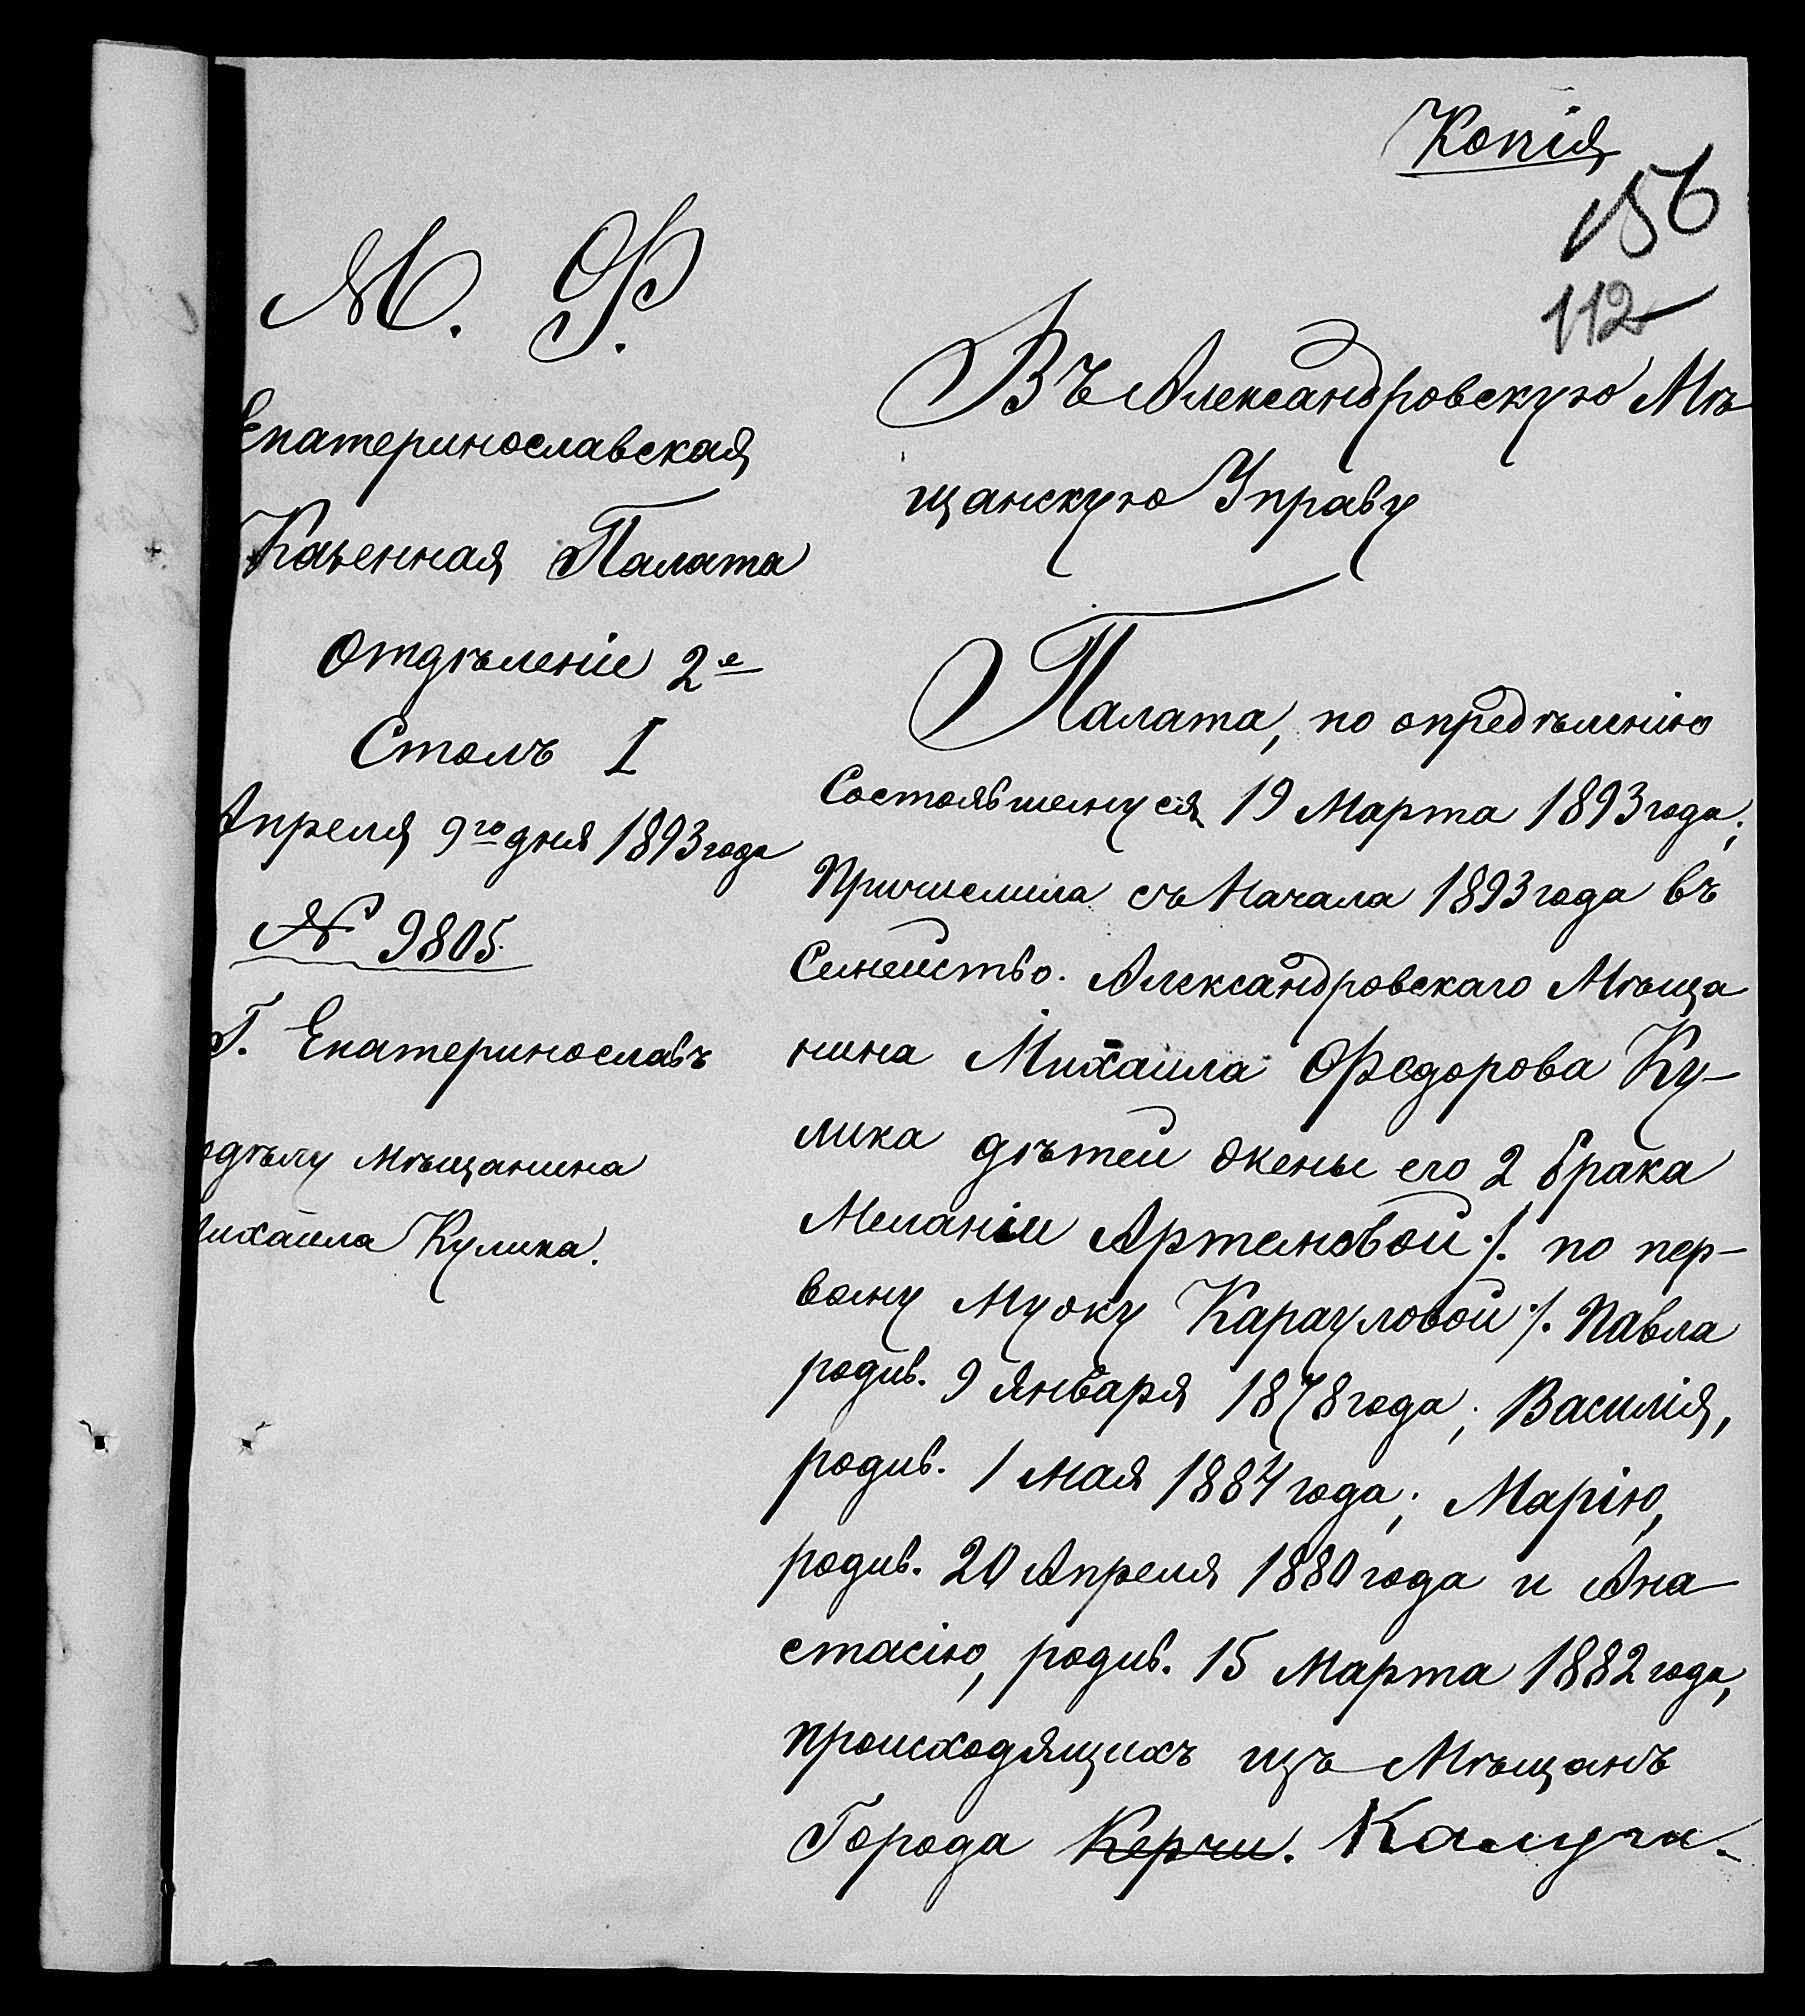 Копія
156
112
М. Ф.
Екатеринославская
Казенная Палата
Отдѣленіе 2е
Столъ I
Апреля 9го дня 1893 года
№ 9805.
Г. Екатеринославъ
одѣлу мѣщанина
Михаила Кулика.
Въ Александровскую Мѣ
щанскую Управу
Палата, по опредѣленію
Состоявшемуся 19 Марта 1893 года;
Причислила съ Начала 1893 года въ
Семейство. Александровскаго Мѣща
нина Михаила Федорова Ку-
лика дѣтей жены его 2 брака
Меланіи Артемовой ./. по пер-
вому мужу Карауловой ./. Павла
родив. 9 Января 1878 года; Василія,
родив. 1 Мая 1884 года; Марію,
родив. 20 Апреля 1880 года и Ана
стасію, родив. 15 Марта 1882 года,
происходящихъ изъ Мѣщанъ
Города Керчи. Калуги.